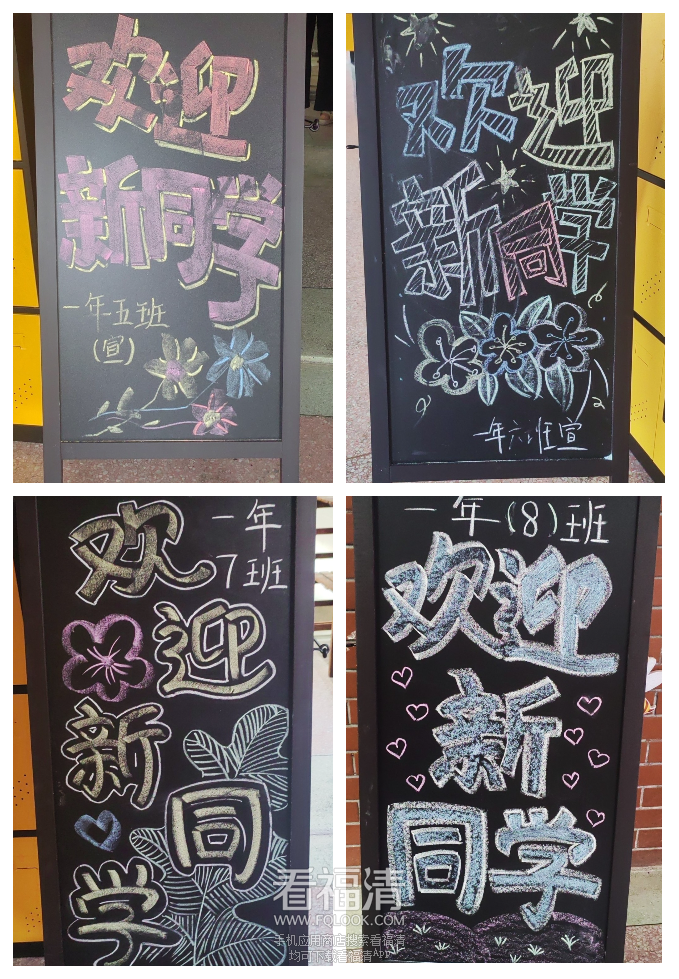 欢迎
新同学
一年五班
(宣)
欢迎
新同学
一年六班宣
一年
7班
欢
迎
新
同
学
一年(8)班
欢迎
新
同学
看福清
WWW.FQLOOK.COM
手机应用商店搜索看福清
均可下载看福清APP